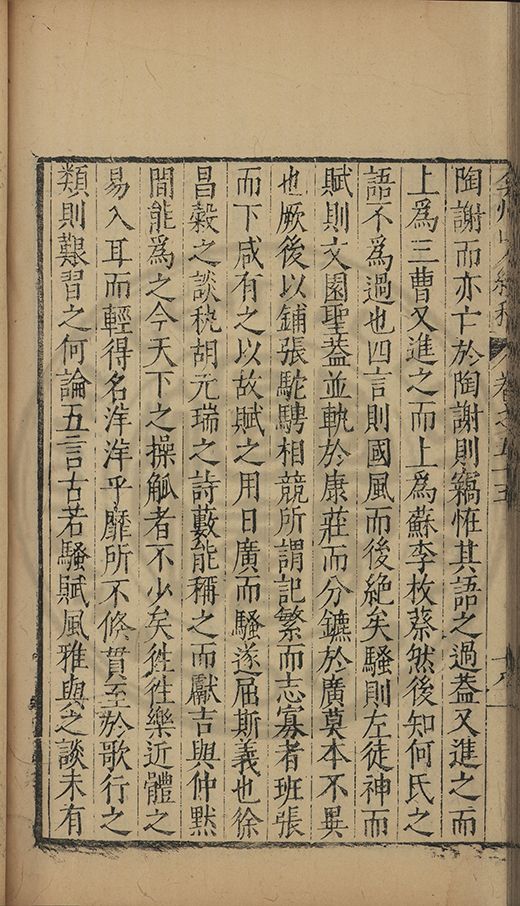 陶謝而亦亡於陶謝則竊恠其語之過蓋又進之而
上為三曹又進之而上為蘇李枚蔡然後知何氏之
語不為過也四言則國風而後絶矣騷則左徒神而
賦則文園聖蓋並軌於康莊而分鑣於廣莫本不異
也厥後以鋪張馳騁相競所謂記繁而志寡者班張
而下咸有之以故賦之用日廣而騷遂屈斯義也徐
昌穀之談秇胡元瑞之詩藪能稱之而獻吉與仲默
間能為之今天下之操觚者不少矣徃徃樂近體之
易入耳而輕得名洋洋乎靡所不條貫至於歌行之
類則艱習之何論五言古若騷賦風雅與之談未有